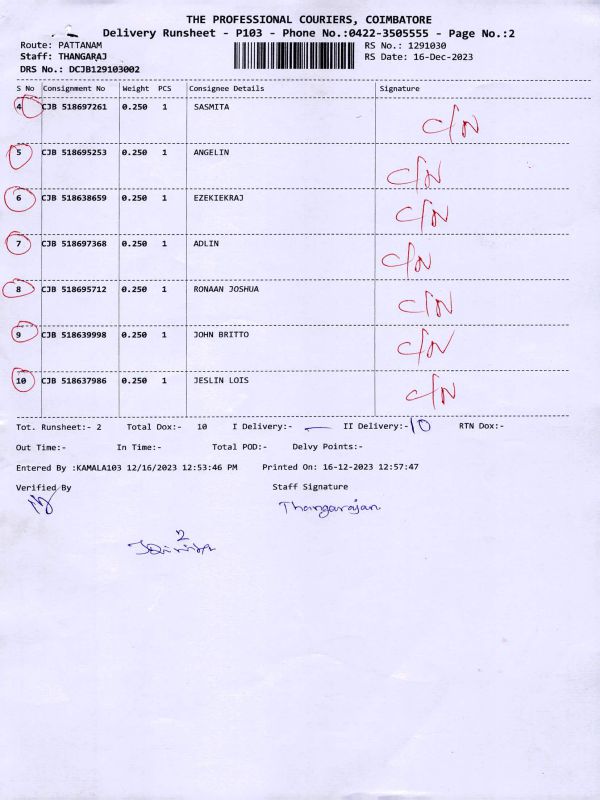 THE PROFESSIONAL COURIERS, COIMBATORE
Delivery Runsheet - P103 - Phone No.:0422-3505555 - Page No.:2
Route: PATTANAM RS No.: 1291030
Staff: THANGARAJ RS Date: 16-Dec-2023
DRS No.: DCJB129103002
S No Consignment No Weight PCS Consignee Details Signature
4 CJB 518697261 0.250 1 SASMITA C/N
5 CJB 518695253 0.250 1 ANGELIN C/N
6 CJB 518638659 0.250 1 EZEKIEKRAJ C/N
7 CJB 518697368 0.250 1 ADLIN C/N
8 CJB 518695712 0.250 1 RONAAN JOSHUA C/N
9 CJB 518639998 0.250 1 JOHN BRITTO C/N
10 CJB 518637986 0.250 1 JESLIN LOIS C/N
Tot. Runsheet:- 2 Total Dox:- 10 I Delivery:- — II Delivery:- 10 RTN Dox:-
Out Time:- In Time:- Total POD:- Delvy Points:-
Entered By :KAMALA103 12/16/2023 12:53:46 PM Printed On: 16-12-2023 12:57:47
Verified By Staff Signature
Thangarajan
2